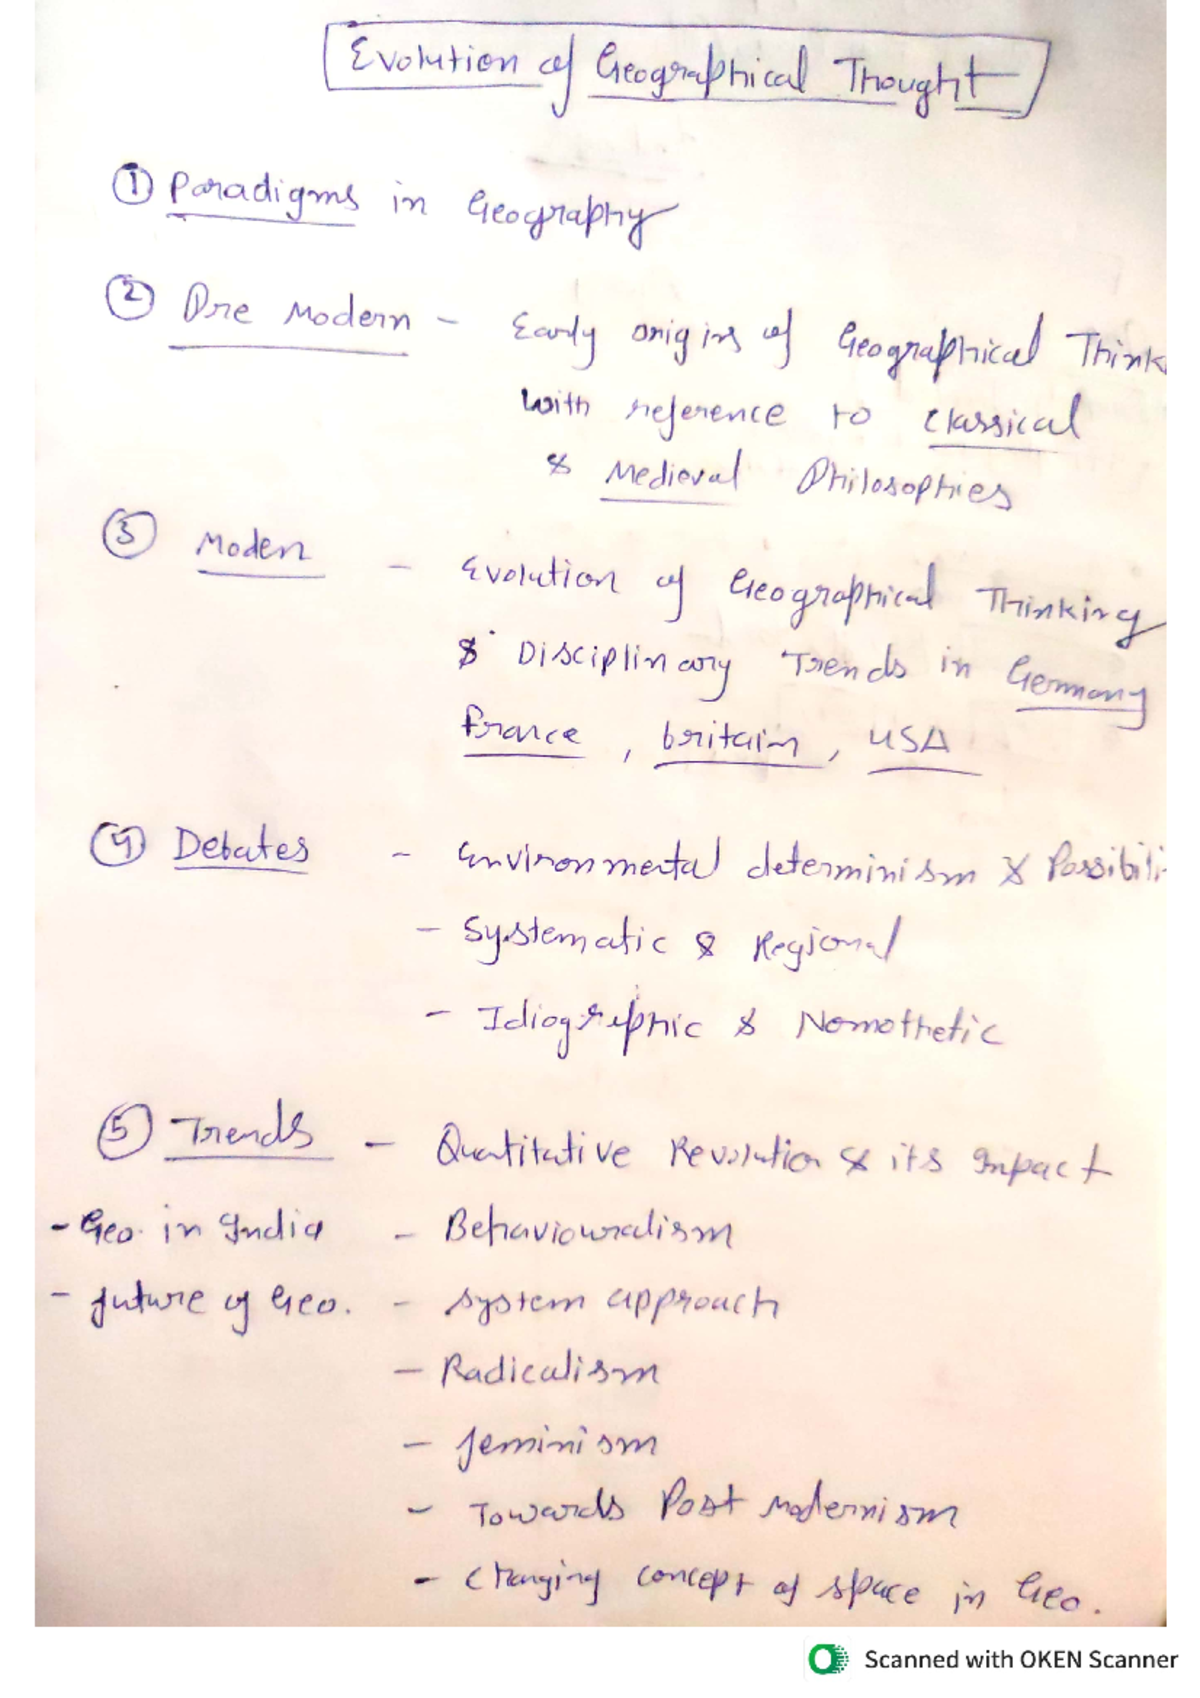 Evolution of Geographical Thought
① Paradigms in Geography
② Pre Modern - Early origins of Geographical Think
with reference to Classical
& Medieval Philosophies
③ Modern - Evolution of Geographical Thinking
& Disciplinary Trends in Germany
France, britain, USA
④ Debates - Environmental determinism & Possibili
- Systematic & Regional
- Idiographic & Nomothetic
⑤ Trends - Quantitative Revolution & its Impact
- Geo. in India - Behaviouralism
- future of Geo. - System approach
- Radicalism
- feminism
- Towards Post Modernism
- Changing concept of space in Geo.
Scanned with OKEN Scanner